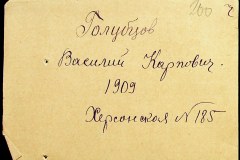 200
Голубцов
Василий Карпович.
1909
Херсонская № 185